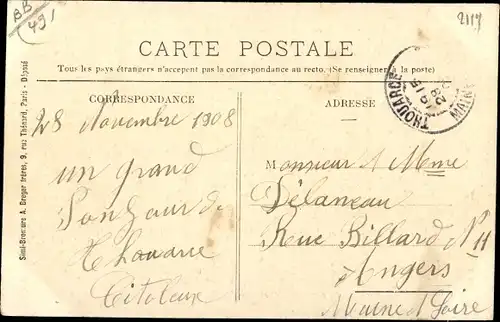 BB
491
2117
CARTE POSTALE
Tous les pays étrangers n'acceptent pas la correspondance au recto. (Se renseigner à la poste)
CORRESPONDANCE
ADRESSE
THOUARCÉ
MAINE
28 Novembre 1908
un grand
Bonjour de
Thouarcé
Monsieur & Mme
Délaneau
Rue Billard N° 11
Angers
Maine & Loire
Simi-Bromure A. Breger frères, 9, rue Thénard, Paris - Déposé